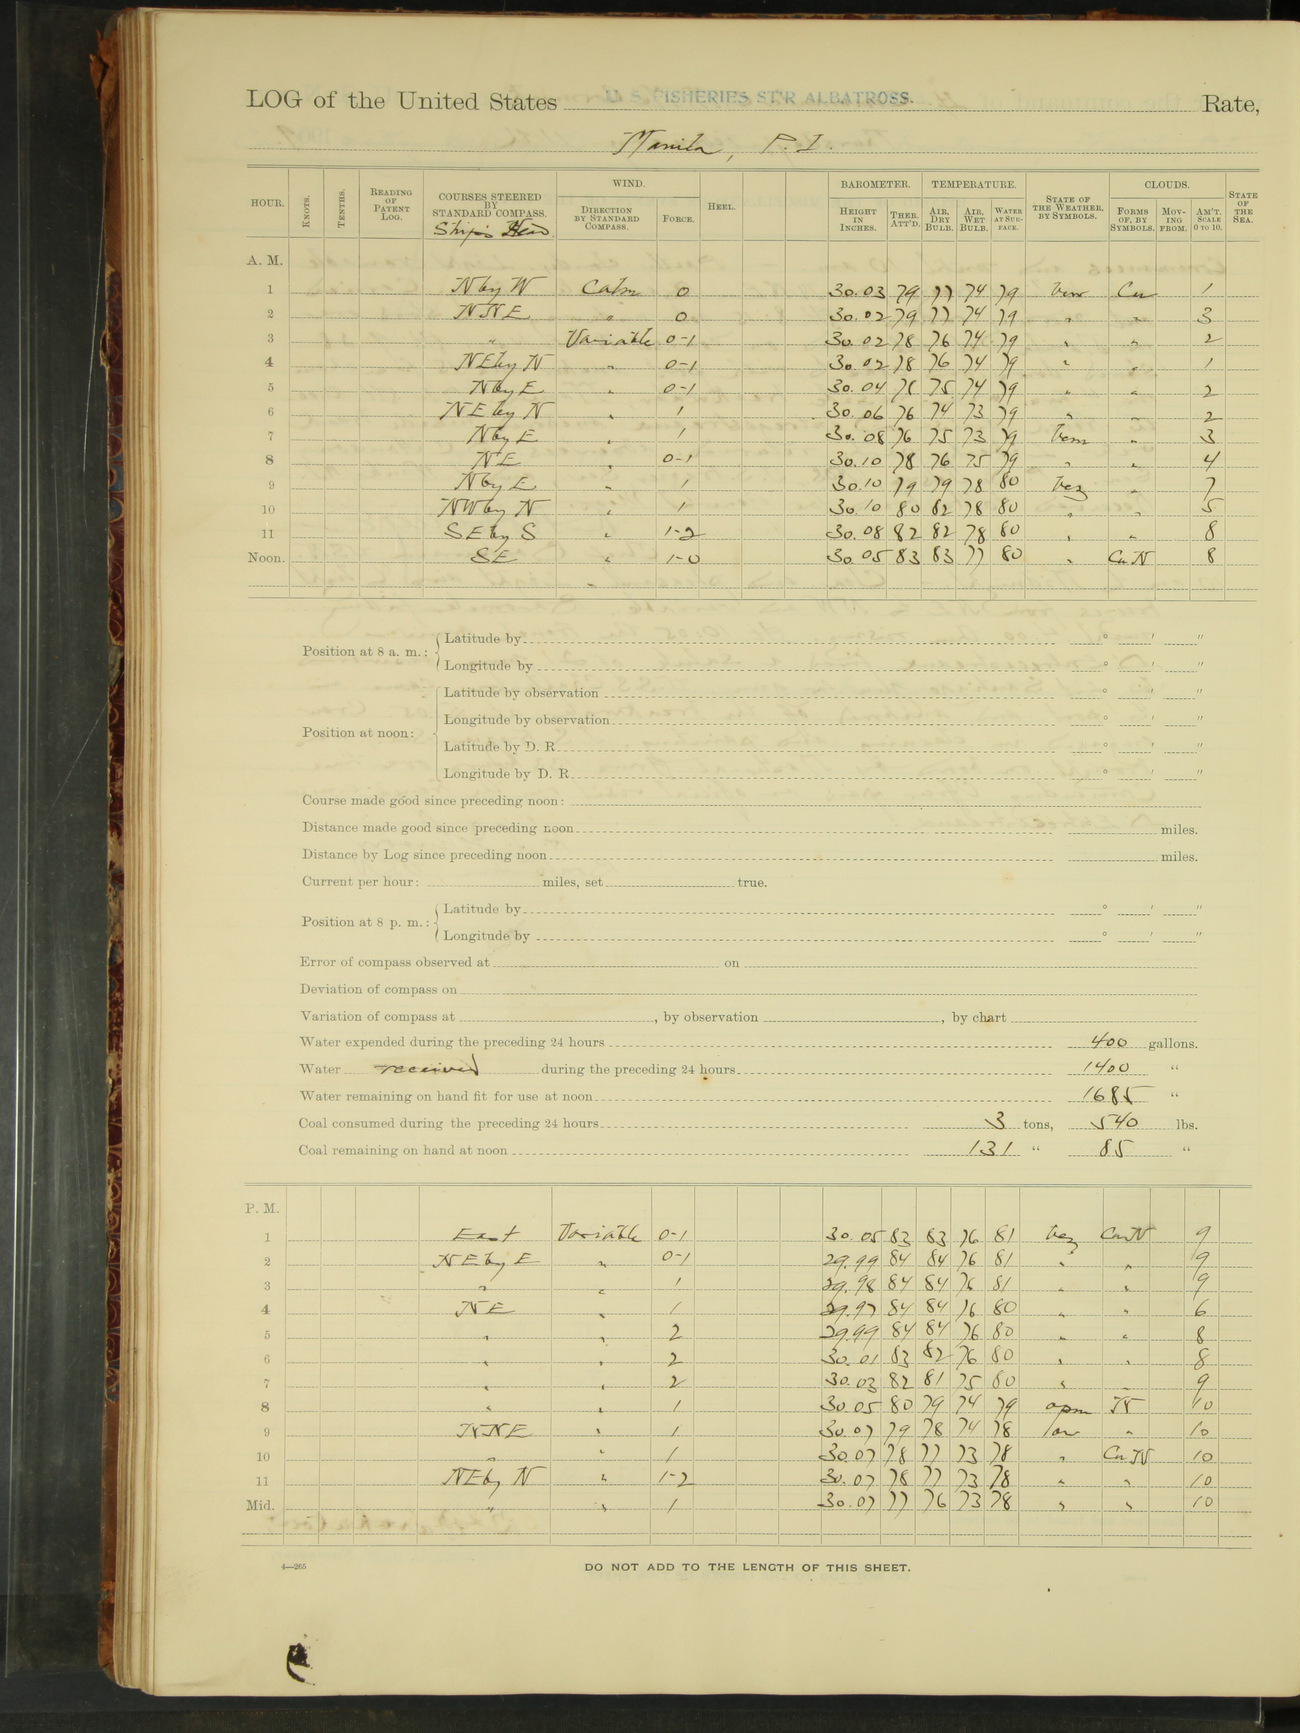 LOG of the United States U. S. FISHERIES ST'R ALBATROSS. Rate,
Manila, P. I.
HOUR. KNOTS. TENTHS. READING OF PATENT LOG. COURSES STEERED BY STANDARD COMPASS. Ship's Head WIND. DIRECTION BY STANDARD COMPASS. FORCE. HEEL. BAROMETER. HEIGHT IN INCHES. THER. ATT'D. TEMPERATURE. AIR, DRY BULB. AIR, WET BULB. WATER AT SURFACE. STATE OF THE WEATHER, BY SYMBOLS. CLOUDS. FORMS OF, BY SYMBOLS. MOVING FROM. AM'T. SCALE 0 TO 10. STATE OF THE SEA.
A. M.
1 N by W Calm 0 30.03 79 77 74 79 Cu 1
2 NNE " 0 30.02 79 77 74 79 " " 3
3 " Variable 0-1 30.02 78 76 74 79 " " 2
4 NE by N " 0-1 30.02 78 76 74 79 " " 1
5 N by E " 0-1 30.04 76 75 74 79 " " 2
6 NE by N " 1 30.06 76 74 73 79 " " 2
7 N by E " 1 30.08 76 75 73 79 bcm " 3
8 NE " 0-1 30.10 78 76 75 79 " " 4
9 N by E " 1 30.10 79 79 78 80 bcz " 7
10 NW by N " 1 30.10 80 82 78 80 " " 5
11 SE by S " 1-2 30.08 82 82 78 80 " " 8
Noon. SE " 1-0 30.05 83 83 77 80 " Cu N 8
Position at 8 a. m.: Latitude by ° ′ ″
Longitude by ° ′ ″
Latitude by observation ° ′ ″
Longitude by observation ° ′ ″
Position at noon:
Latitude by D. R. ° ′ ″
Longitude by D. R. ° ′ ″
Course made good since preceding noon:
Distance made good since preceding noon miles.
Distance by Log since preceding noon miles.
Current per hour: miles, set true.
Position at 8 p. m.: Latitude by ° ′ ″
Longitude by ° ′ ″
Error of compass observed at on
Deviation of compass on
Variation of compass at , by observation , by chart
Water expended during the preceding 24 hours 400 gallons.
Water received during the preceding 24 hours 1400 "
Water remaining on hand fit for use at noon 1685 "
Coal consumed during the preceding 24 hours 3 tons, 540 lbs.
Coal remaining on hand at noon 131 " 85 "
P. M.
1 East Variable 0-1 30.05 83 83 76 81 bcz Cu N 9
2 NE by E " 0-1 29.99 84 84 76 81 " " 9
3 " " 1 29.98 84 84 76 81 " " 9
4 NE " 1 29.97 84 84 76 80 " " 6
5 " " 2 29.99 84 84 76 80 " " 8
6 " " 2 30.01 83 82 76 80 " " 8
7 " " 2 30.03 82 81 75 80 " " 9
8 " " 1 30.05 80 79 74 79 opm N 10
9 NNE " 1 30.07 79 78 74 78 " 10
10 " " 1 30.07 78 77 73 78 " Cu N 10
11 NE by N " 1-2 30.07 78 77 73 78 " " 10
Mid. " " 1 30.07 77 76 73 78 " " 10
4—265 DO NOT ADD TO THE LENGTH OF THIS SHEET.